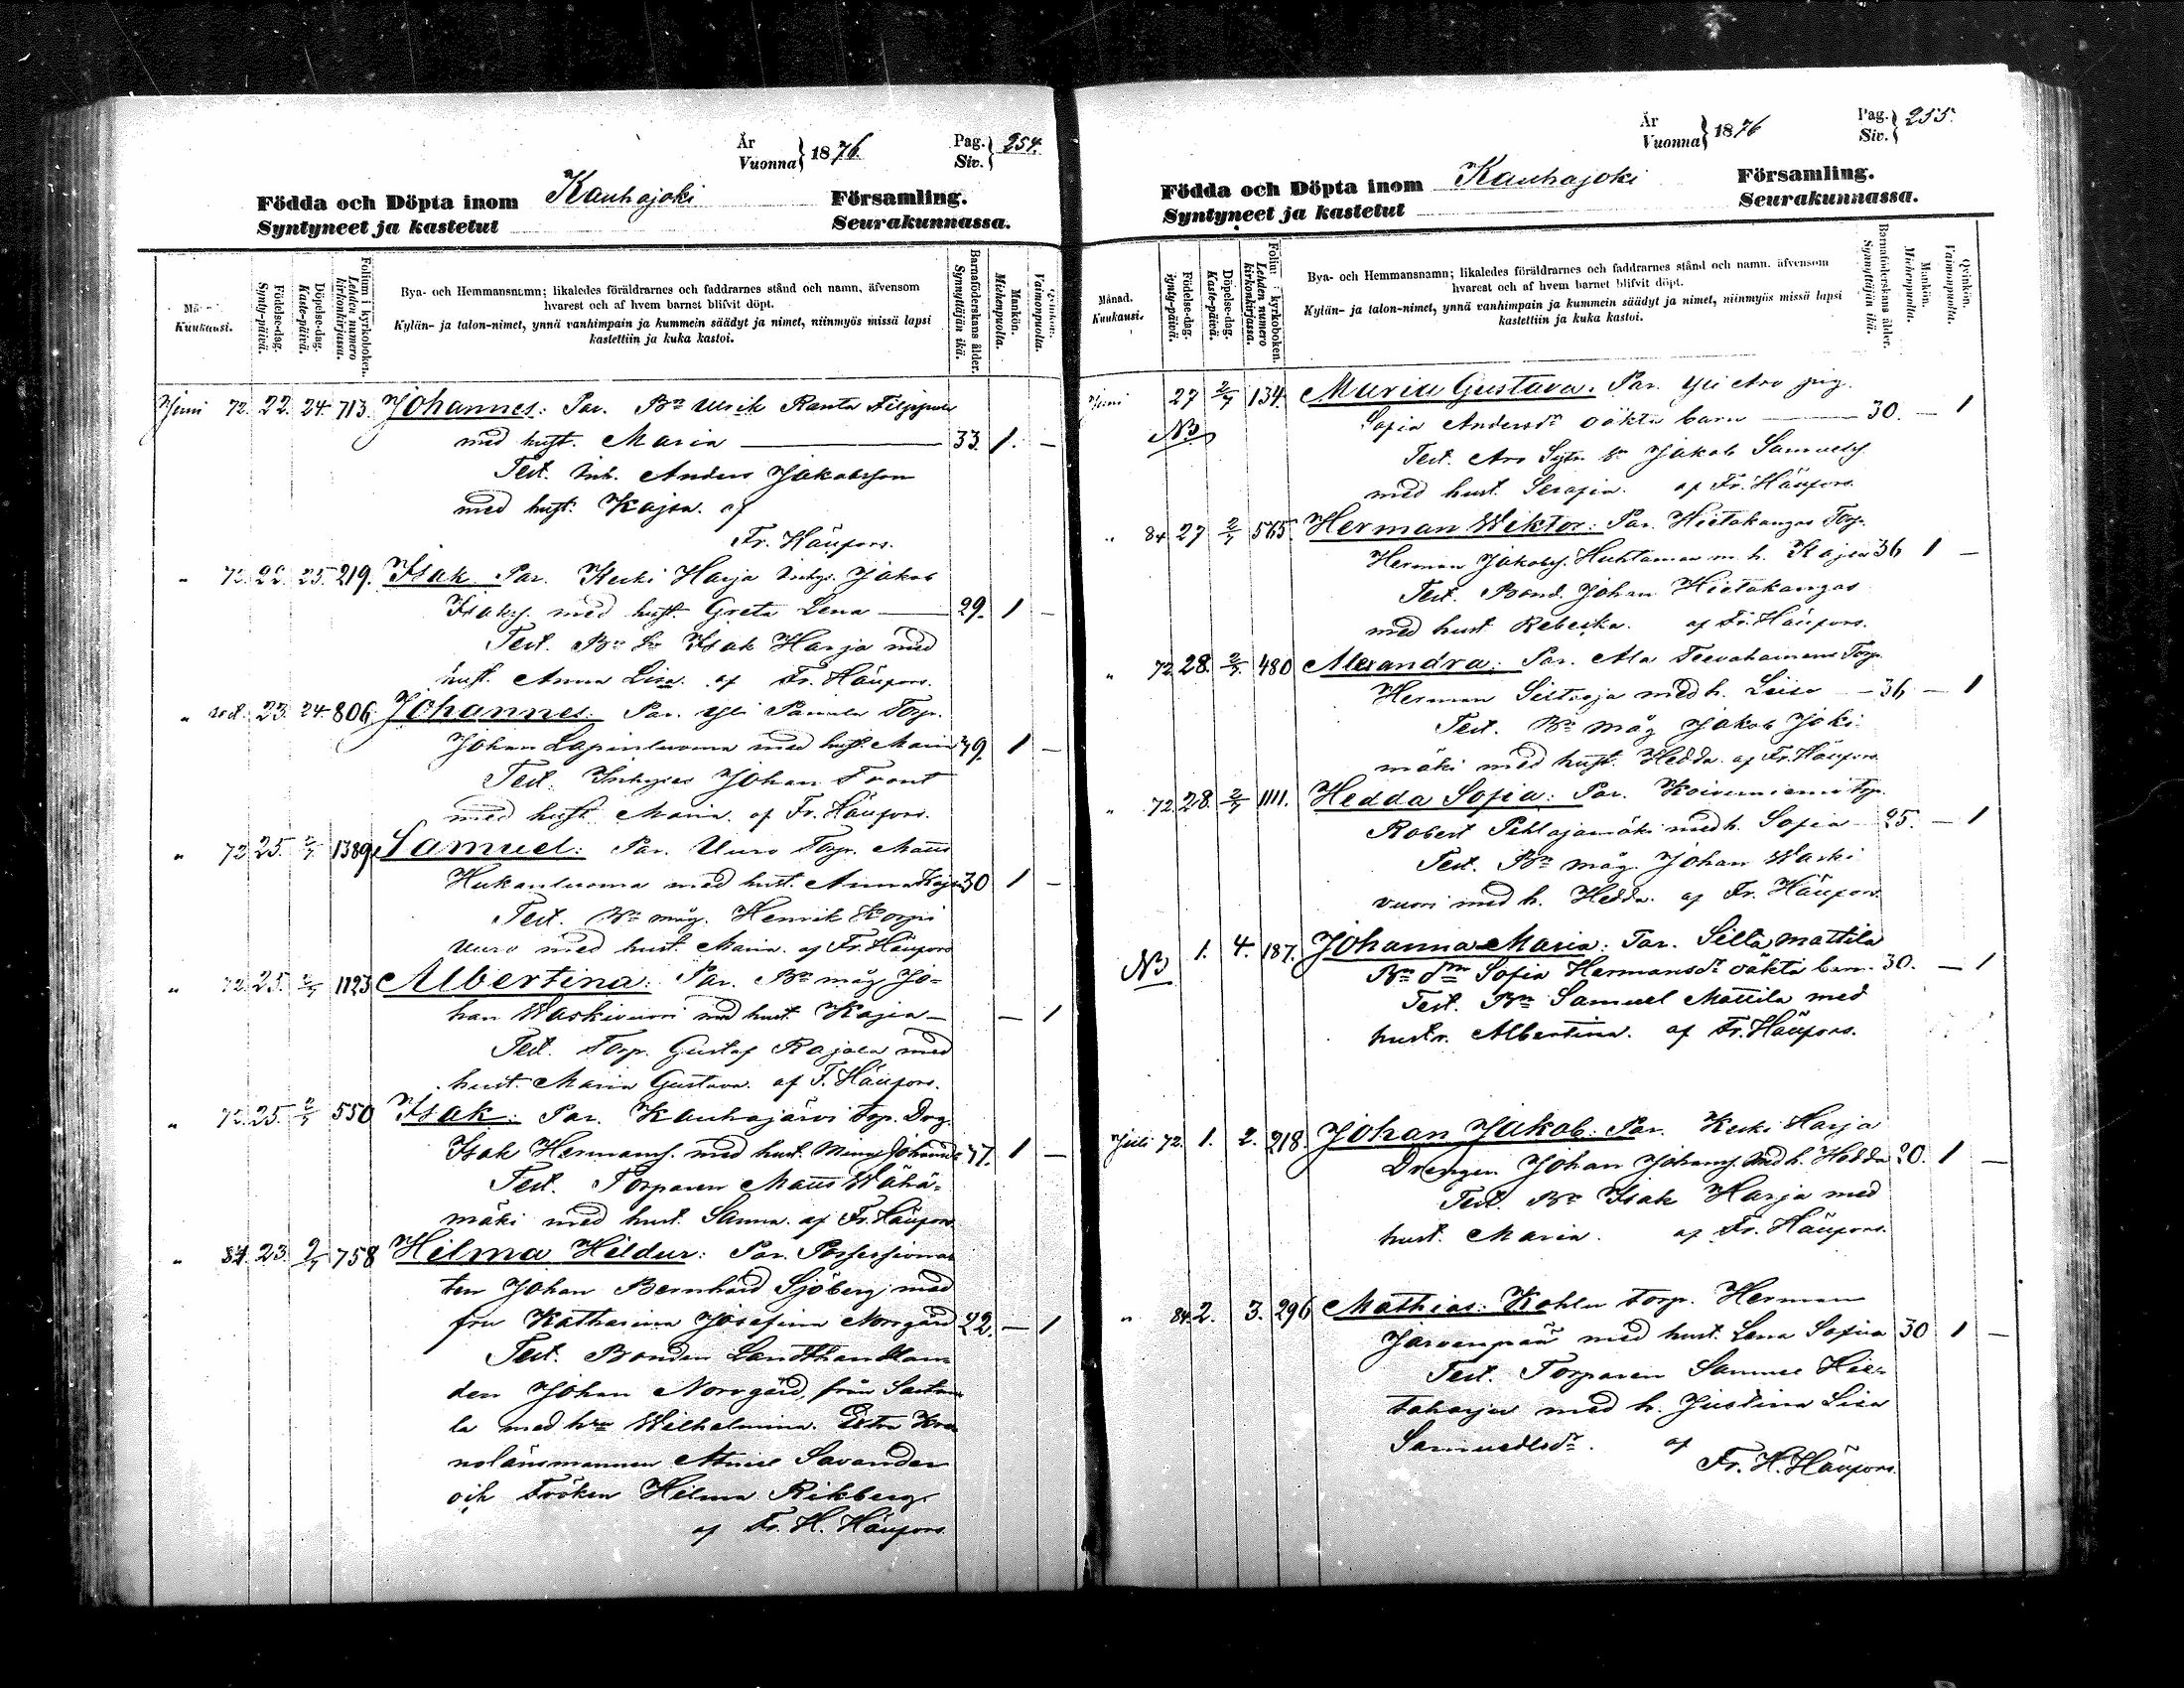 År
Vuonna } 1876. Pag. Siv. } 254.
Födda och Döpta inom Kauhajoki Församling.
Syntyneet ja kastetut Seurakunnassa.
Kuukausi.
Födelse-dag.
Synty-päivä.
Döpelse-dag.
Kaste-päivä.
Folium i kyrkoboken.
Lehden numero kirkonkirjassa.
Bya- och Hemmansnamn; likaledes föräldrarnes och faddrarnes stånd och namn, äfvensom
hvarest och af hvem barnet blifvit döpt.
Kylän- ja talon-nimet, ynnä vanhimpain ja kummein säädyt ja nimet, niinmyös missä lapsi
kastettiin ja kuka kastoi.
Barnaföderskans ålder.
Synnyttäjän ikä.
Mankön.
Miehenpuolia.
Vaimonpuolia.
Juni 72. 22. 24. 713. Johannes: Par. Bn Ulrik Ranta Filppula
med hust. Maria — 33. 1. —
Test. Inh. Anders Jakobsson
med hust. Kajsa. af
Fr. Häufors.
" 72. 22. 25. 219. Isak. Par. Keski Harja Inhys. Jakob
Isaks. med hust. Greta Lena — 29. 1 —
Test. Isak Harja med
hust. Anna Lisa. af Fr. Häufors.
" 23. 24. 806. Johannes: Par. Yli Panula Torp.
Johan Lapinluoma med hust. Maria 39. 1 —
Test. Inhyses Johan Front
med hust. Maria. af Fr. Häufors.
" 72 25. 2/7 1389 Samuel: Par. Uuro Torp. Matts
Hukanluoma med hust. Anna Kajsa 30 1 —
Test. Bn måg. Henrik Korpi
Uuro med hust. Maria. af Fr. Häufors
" 72. 25. 2/7 1123 Albertina: Par. Bn måg Jo-
han Waskivuori med hust. Kajsa — — 1
Test. Torp. Gustaf Rajala med
hust. Maria Gustava. af F. Häufors.
" 72. 25. 2/7 550 Isak: Par. Kauhajärvi torp. Drg.
Isak Hermans. med hust. Mina 1 —
Test. Torparen Matts Wähä-
mäki med hust. Sanna. af Fr. Häufors
" 84. 23. 2/7 758 Hilma Hildur: Par. Possessiona-
ten Johan Bernhard Sjöberg med
fru Katharina Josefina Norrgård 22. — 1
Test. Bonden Landthandlan-
den Johan Norrgård, från
la med hru Wilhelmina. Extra Kro-
nolänsmannen Savander
och Fröken Hilma Rikberg.
af Fr. H. Häufors.
År
Vuonna } 1876 Pag. Siv. } 255.
Födda och Döpta inom Kauhajoki Församling.
Syntyneet ja kastetut Seurakunnassa.
Månad.
Kuukausi.
Födelse-dag.
synty-päivä.
Döpelse-dag.
Kaste-päivä.
Folium i kyrkoboken.
Lehden numero kirkonkirjassa.
Bya- och Hemmansnamn; likaledes föräldrarnes och faddrarnes stånd och namn, äfvensom
hvarest och af hvem barnet blifvit döpt.
Kylän- ja talon-nimet, ynnä vanhimpain ja kummein säädyt ja nimet, niinmyös missä lapsi
kastettiin ja kuka kastoi.
Barnaföderskans ålder.
Synnyttäjän ikä.
Mankön.
Miehenpuolia.
Qvinkön.
Vaimonpuolia.
Juni 27 2/7 134. Maria Gustava. Par. Yli Aro pig.
Sofia Andersdr oäkta barn — 30. — 1
Test. Aro Jakob Samuels.
med hust. Serafia. af Fr. Häufors.
" 84 27 2/7 565. Herman Wiktor: Par. Hietakangas Torp.
Herman Jakobs. Huhtamaa m. h. Kajsa 36 1 —
Test. Bond. Johan Hietakangas
med hust. Rebecka. af Fr. Häufors.
" 72 28. 2/7. 480 Alexandra: Par. Ala Teevahainens Torp.
Herman med h. Lisa — 36 — 1
Test. Bn måg Jakob Joki-
mäki med hust. Hedda. af Fr. Häufors
" 72 28. 2/7 1111. Hedda Sofia: Par. Koivuniemi torp.
Robert Pihlajamäki med h. Sofia — 25. — 1
Test. Bn måg. Johan Waski-
vuori med h. Hedda. af Fr. Häufors.
1. 4. 187. Johanna Maria: Par. Silta Mattila
Bn dtr Sofia Hermansdr oäkta barn. 30. — 1
Test. Bn Samuel Mattila med
hustr. Albertina. af Fr. Häufors.
Juli 72. 1. 2. 218. Johan Jakob: Par. Keski Harja
Drengen Johan Johans. med h. Hedda 20. 1 —
Test. Bn Isak Harja med
hust. Maria. af Fr. Häufors.
" 84. 2. 3. 296 Mathias: Kohlu torp. Herman
Jarvenpää med hust. Lena Sofia 30 1 —
Test. Torparen Samuel Hie-
taharju med h. Justina Lisa
Samuelsdr. af
Fr. H. Häufors.